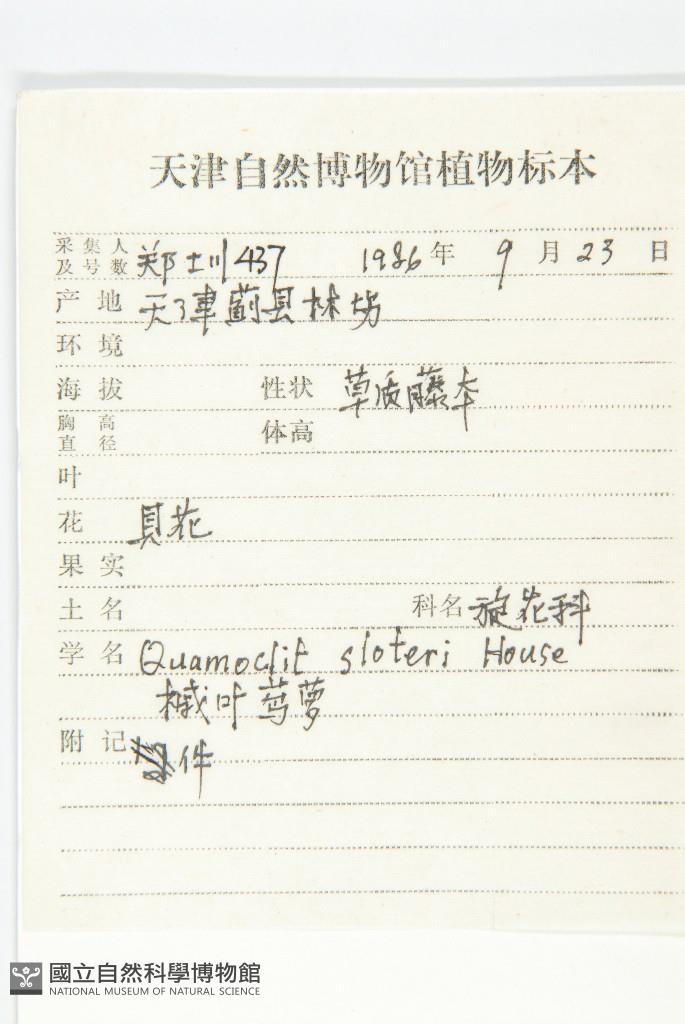 天津自然博物馆植物标本
采集人及号数 郑士川 437 1986年 9月 23日
产地 天津蓟县林场
环境
海拔 性状 草质藤本
胸高直径 体高
叶
花 具花
果实
土名 科名 旋花科
学名 Quamoclit sloteri House
槭叶茑萝
附记 件
國立自然科學博物館
NATIONAL MUSEUM OF NATURAL SCIENCE